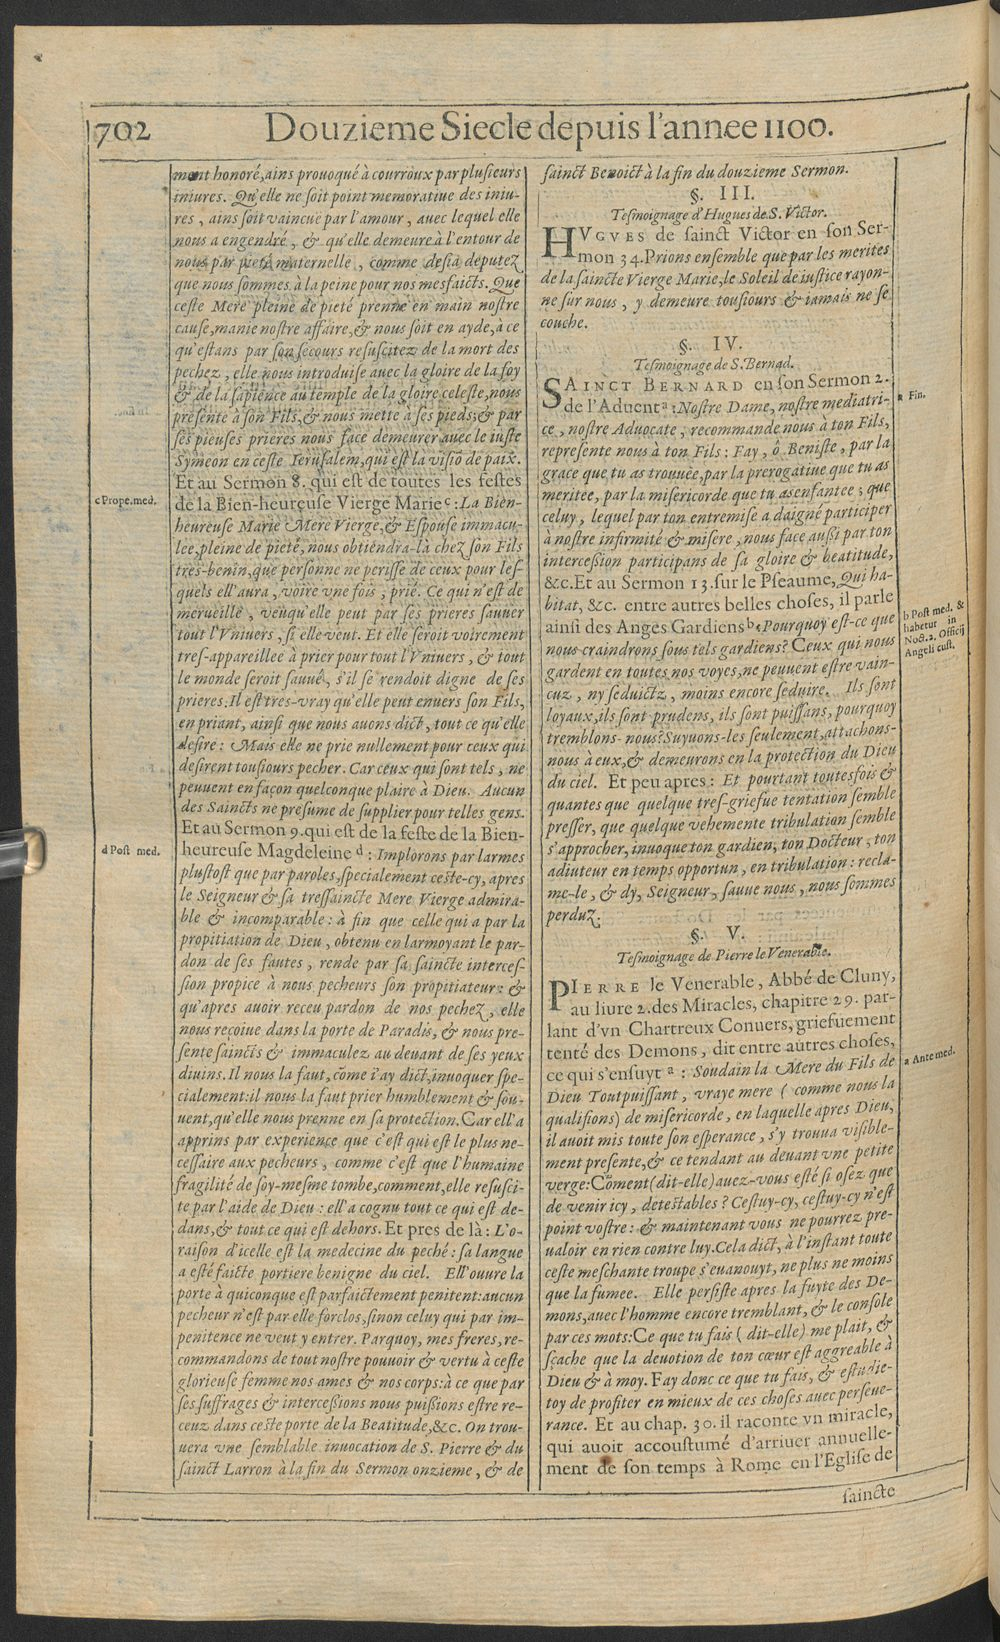 702
Douzieme Siecle depuis l'annee 1100.
ment honoré, ains prouoqué à courroux par plusieurs
iniures. Qu'elle ne soit point memoratiue des iniu-
res, ains soit vaincuë par l'amour, auec lequel elle
nous a engendré, & qu'elle demeure à l'entour de
nous par pieté maternelle, comme desià deputez
que nous sommes à la peine pour nos mesfaicts. Que
ceste Mere pleine de pieté prenne en main nostre
cause, manie nostre affaire, & nous soit en ayde, à ce
qu'estans par son secours resuscitez de la mort des
pechez, elle nous introduise auec la gloire de la foy
& de la sapience au temple de la gloire celeste, nous
presente à son Fils, & nous mette à ses pieds; & par
ses pieuses prieres nous face demeurer auec le iuste
Symeon en ceste Ierusalem, qui est la visiō de paix.
Et au Sermon 8. qui est de toutes les festes
c Prope. med.
de la Bien-heureuse Vierge Marie c : La Bien-
heureuse Marie Mere Vierge, & Espouse immacu-
lee, pleine de pieté, nous obtiendra-là chez son Fils
tres-benin, que personne ne perisse de ceux pour les-
quels ell'aura, voire vne fois, prié. Ce qui n'est de
merueille, veu qu'elle peut par ses prieres sauuer
tout l'Vniuers, si elle veut. Et elle seroit voirement
tres-appareillee à prier pour tout l'Vniuers, & tout
le monde seroit sauué, s'il se rendoit digne de ses
prieres. Il est tres-vray qu'elle peut enuers son Fils,
en priant, ainsi que nous auons dict, tout ce qu'elle
desire: Mais elle ne prie nullement pour ceux qui
desirent tousiours pecher. Car ceux qui sont tels, ne
peuuent en façon quelconque plaire à Dieu. Aucun
des Saincts ne presume de supplier pour telles gens.
Et au Sermon 9. qui est de la feste de la Bien-
d Post med.
heureuse Magdeleine d : Implorons par larmes
plustost que par paroles, specialement ceste-cy, apres
le Seigneur & sa tressaincte Mere Vierge admira-
ble & incomparable: à fin que celle qui a par la
propitiation de Dieu, obtenu en larmoyant le par-
don de ses fautes, rende par sa saincte interces-
sion propice à nous pecheurs son propitiateur: &
qu'apres auoir receu pardon de nos pechez, elle
nous reçoiue dans la porte de Paradis, & nous pre-
sente saincts & immaculez au deuant de ses yeux
diuins. Il nous la faut, cōme i'ay dict, inuoquer spe-
cialement: il nous la faut prier humblement & sou-
uent, qu'elle nous prenne en sa protection. Car ell'a
apprins par experience que c'est qui est le plus ne-
cessaire aux pecheurs, comme c'est que l'humaine
fragilité de soy-mesme tombe, comment, elle resusci-
te par l'aide de Dieu: ell'a cognu tout ce qui est de-
dans, & tout ce qui est dehors. Et pres de là: L'o-
raison d'icelle est la medecine du peché: sa langue
a esté faicte portiere benigne du ciel. Ell'ouure la
porte à quiconque est parfaictement penitent: aucun
pecheur n'est par elle forclos, sinon celuy qui par im-
penitence ne veut y entrer. Parquoy, mes freres, re-
commandons de tout nostre pouuoir & vertu à ceste
glorieuse femme nos ames & nos corps: à ce que par
ses suffrages & intercessions nous puissions estre re-
ceuz dans ceste porte de la Beatitude, &c. On trou-
uera vne semblable inuocation de S. Pierre & du
sainct Larron à la fin du Sermon onzieme, & de
sainct Benoict à la fin du douzieme Sermon.
§. III.
Tesmoignage d'Hugues de S. Victor.
HVGVES de sainct Victor en son Ser-
mon 34. Prions ensemble que par les merites
de la saincte Vierge Marie, le Soleil de iustice rayon-
ne sur nous, y demeure tousiours & iamais ne se
couche.
§. IV.
Tesmoignage de S. Bernad.
SAINCT BERNARD en son Sermon 2.
de l'Aduent a : Nostre Dame, nostre mediatri-
a Fin.
ce, nostre Aduocate, recommande nous à ton Fils,
represente nous à ton Fils: Fay, ô Beniste, par la
grace que tu as trouuée, par la prerogatiue que tu as
meritee, par la misericorde que tu as enfantee; que
celuy, lequel par ton entremise a daigné participer
à nostre infirmité & misere, nous face aussi par ton
intercession participans de sa gloire & beatitude,
&c. Et au Sermon 13. sur le Pseaume, Qui ha-
bitat, &c. entre autres belles choses, il parle
ainsi des Anges Gardiens b. Pourquoy est-ce que
b Post med. &
habetur in
Noct. 2. Officij
Angeli cust.
nous craindrons sous tels gardiens? Ceux qui nous
gardent en toutes nos voyes, ne peuuent estre vain-
cuz, ny seduictz, moins encore seduire. Ils sont
loyaux, ils sont prudens, ils sont puissans, pourquoy
tremblons-nous? Suyuons-les seulement, attachons-
nous à eux, & demeurons en la protection du Dieu
du ciel. Et peu apres: Et pourtant toutesfois &
quantes que quelque tres-griefue tentation semble
presser, que quelque vehemente tribulation semble
s'approcher, inuoque ton gardien, ton Docteur, ton
adiuteur en temps opportun, en tribulation: recla-
me-le, & dy, Seigneur, sauue nous, nous sommes
perduz.
§. V.
Tesmoignage de Pierre le Venerable.
PIERRE le Venerable, Abbé de Cluny,
au liure 2. des Miracles, chapitre 29. par-
lant d'vn Chartreux Conuers, griefuement
tenté des Demons, dit entre autres choses,
ce qui s'ensuyt a : Soudain la Mere du Fils de
a Ante med.
Dieu Toutpuissant, vraye mere (comme nous la
qualifions) de misericorde, en laquelle apres Dieu,
il auoit mis toute son esperance, s'y trouua visible-
ment presente, & ce tendant au deuant vne petite
verge: Cōment (dit-elle) auez-vous esté si osez que
de venir icy, detestables? Cestuy-cy, cestuy-cy n'est
point vostre: & maintenant vous ne pourrez pre-
ualoir en rien contre luy. Cela dict, à l'instant toute
ceste meschante troupe s'euanouyt, ne plus ne moins
que la fumee. Elle persiste apres la fuyte des De-
mons, auec l'homme encore tremblant, & le console
par ces mots: Ce que tu fais (dit-elle) me plait, &
sçache que la deuotion de ton cœur est aggreable à
Dieu & à moy. Fay donc ce que tu fais, & estudie-
toy de profiter en mieux de ces choses auec perseue-
rance. Et au chap. 30. il raconte vn miracle,
qui auoit accoustumé d'arriuer annuelle-
ment de son temps à Rome en l'Eglise de
saincte